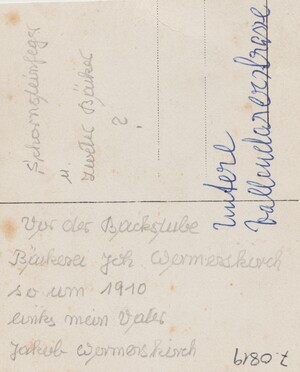 Schornsteinfeger
u.
zweite Bäcker
?
untere
Vallendarerstrasse
Vor der Backstube
Bäkerei Joh Wermerskirch
so um 1910
links mein Vater
Jakob Wermerskirch
7.0819